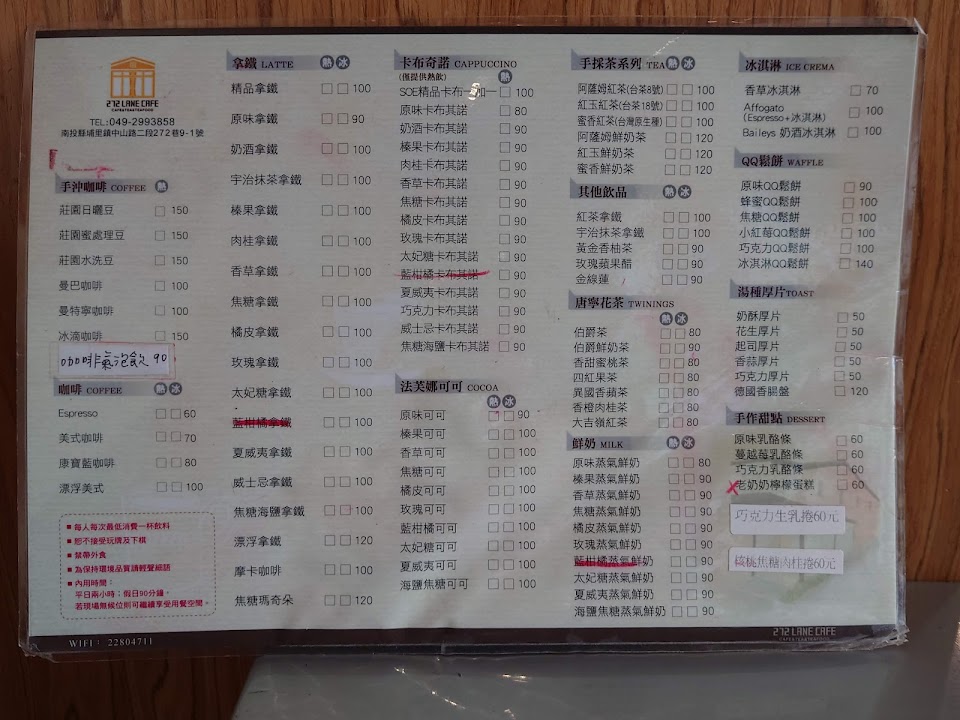 272 LANE CAFE
CAFE&TEA&TEAFOOD
TEL:049-2993858
南投縣埔里鎮中山路二段272巷9-1號
手沖咖啡 COFFEE 熱
莊園日曬豆 150
莊園蜜處理豆 150
莊園水洗豆 150
曼巴咖啡 100
曼特寧咖啡 100
冰滴咖啡 150
咖啡氣泡飲 90
咖啡 COFFEE 熱 冰
Espresso 60
美式咖啡 70
康寶藍咖啡 80
漂浮美式 100
■ 每人每次最低消費一杯飲料
■ 恕不接受玩牌及下棋
■ 禁帶外食
■ 為保持環境品質請輕聲細語
■ 內用時間：
平日兩小時；假日90分鐘，
若現場無候位則可繼續享受用餐空間。
WIFI： 22804711
拿鐵 LATTE 熱 冰
精品拿鐵 100
原味拿鐵 90
奶酒拿鐵 100
宇治抹茶拿鐵 100
榛果拿鐵 100
肉桂拿鐵 100
香草拿鐵 100
焦糖拿鐵 100
橘皮拿鐵 100
玫瑰拿鐵 100
太妃糖拿鐵 100
藍柑橘拿鐵 100
夏威夷拿鐵 100
威士忌拿鐵 100
焦糖海鹽拿鐵 100
漂浮拿鐵 120
摩卡咖啡 100
焦糖瑪奇朵 120
卡布奇諾 CAPPUCCINO
(僅提供熱飲) 熱
SOE精品卡布一加一 100
原味卡布其諾 80
奶酒卡布其諾 90
榛果卡布其諾 90
肉桂卡布其諾 90
香草卡布其諾 90
焦糖卡布其諾 90
橘皮卡布其諾 90
玫瑰卡布其諾 90
太妃糖卡布其諾 90
藍柑橘卡布其諾 90
夏威夷卡布其諾 90
巧克力卡布其諾 90
威士忌卡布其諾 90
焦糖海鹽卡布其諾 90
法芙娜可可 COCOA
熱 冰
原味可可 90
榛果可可 100
香草可可 100
焦糖可可 100
橘皮可可 100
玫瑰可可 100
藍柑橘可可 100
太妃糖可可 100
夏威夷可可 100
海鹽焦糖可可 100
手採茶系列 TEA 熱 冰
阿薩姆紅茶(台茶8號) 100
紅玉紅茶(台茶18號) 100
蜜香紅茶(台灣原生種) 100
阿薩姆鮮奶茶 120
紅玉鮮奶茶 120
蜜香鮮奶茶 120
其他飲品 熱 冰
紅茶拿鐵 100
宇治抹茶拿鐵 100
黃金香柚茶 90
玫瑰蘋果醋 90
金線蓮 90
唐寧花茶 TWININGS
熱 冰
伯爵茶 80
伯爵鮮奶茶 90
香甜蜜桃茶 80
四紅果茶 80
異國香蘋茶 80
香橙肉桂茶 80
大吉嶺紅茶 80
鮮奶 MILK 熱 冰
原味蒸氣鮮奶 80
榛果蒸氣鮮奶 90
香草蒸氣鮮奶 90
焦糖蒸氣鮮奶 90
橘皮蒸氣鮮奶 90
玫瑰蒸氣鮮奶 90
藍柑橘蒸氣鮮奶 90
太妃糖蒸氣鮮奶 90
夏威夷蒸氣鮮奶 90
海鹽焦糖蒸氣鮮奶 90
冰淇淋 ICE CREMA
香草冰淇淋 70
Affogato
(Espresso+冰淇淋) 100
Baileys 奶酒冰淇淋 100
QQ鬆餅 WAFFLE
原味QQ鬆餅 90
蜂蜜QQ鬆餅 100
焦糖QQ鬆餅 100
小紅莓QQ鬆餅 100
巧克力QQ鬆餅 100
冰淇淋QQ鬆餅 140
湯種厚片TOAST
奶酥厚片 50
花生厚片 50
起司厚片 50
香蒜厚片 50
巧克力厚片 50
德國香腸盤 120
手作甜點 DESSERT
原味乳酪條 60
蔓越莓乳酪條 60
巧克力乳酪條 60
老奶奶檸檬蛋糕 60
巧克力生乳捲60元
核桃焦糖肉桂捲60元
272 LANE CAFE
CAFE&TEA&TEAFOOD